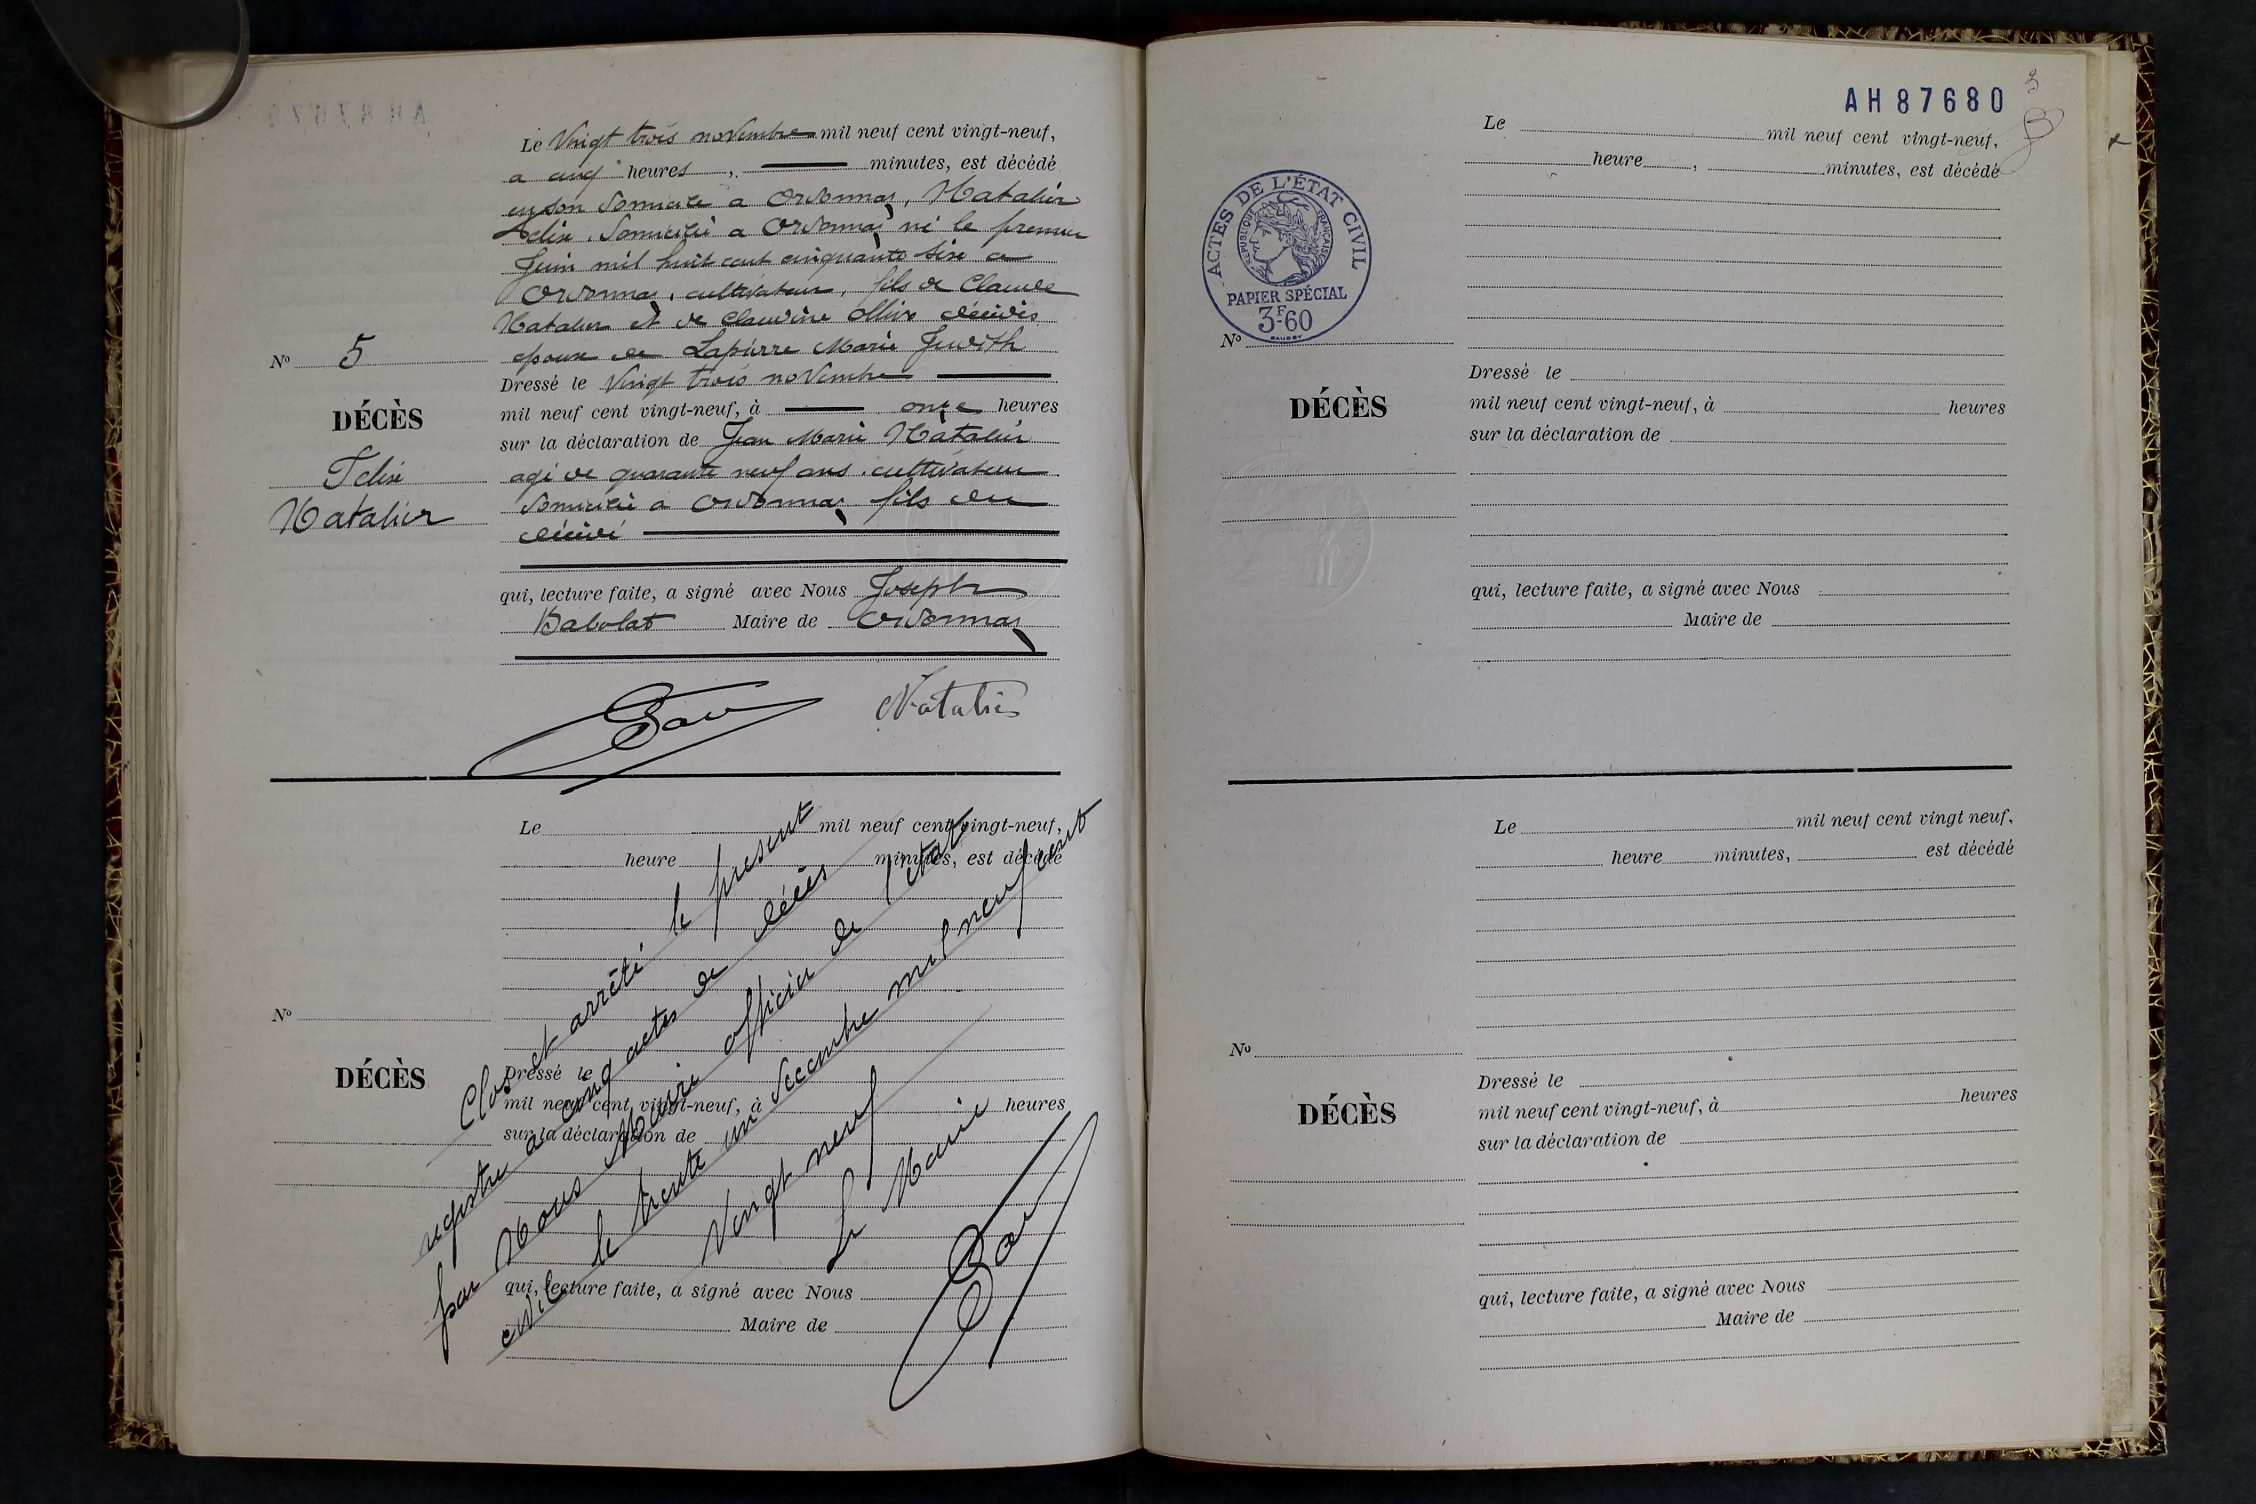 Le Vingt trois novembre mil neuf cent vingt-neuf,
a cinq heures, minutes, est décédé
en son domicile a Ordonnaz, Natalier
Félix domicilié a Ordonnaz né le premier
Juin mil huit cent cinquante six a
Ordonnaz, cultivateur, fils de Claude
Natalier et de Claudine décédés
époux de Lapierre Marie Judith
Nº 5
DÉCÈS
Félix
Natalier
Dressé le Vingt trois novembre
mil neuf cent vingt-neuf, à onze heures
sur la déclaration de Jean Marie Natalier
agé de quarante neuf ans cultivateur
domicilié a Ordonnaz fils du
décédé
qui, lecture faite, a signé avec Nous Joseph
Babolat Maire de Ordonnaz
Natalier
Le mil neuf cent vingt-neuf,
heure minutes, est décédé
Nº
DÉCÈS
Dressé le
mil neuf cent vingt-neuf, à heures
sur la déclaration de
qui, lecture faite, a signé avec Nous
Maire de
Clos et arrêté le present
registre a cinq actes de décès
par Nous Maire officier de l'état
civil le trente un décembre mil neuf cent
Vingt neuf
Le Maire
AH 87680
3
Le mil neuf cent vingt-neuf,
heure, minutes, est décédé
ACTES DE L'ÉTAT CIVIL
RÉPUBLIQUE FRANÇAISE
PAPIER SPÉCIAL
3F60
Nº
DÉCÈS
Dressé le
mil neuf cent vingt-neuf, à heures
sur la déclaration de
qui, lecture faite, a signé avec Nous
Maire de
Le mil neuf cent vingt neuf,
heure minutes, est décédé
Nº
DÉCÈS
Dressé le
mil neuf cent vingt-neuf, à heures
sur la déclaration de
qui, lecture faite, a signé avec Nous
Maire de